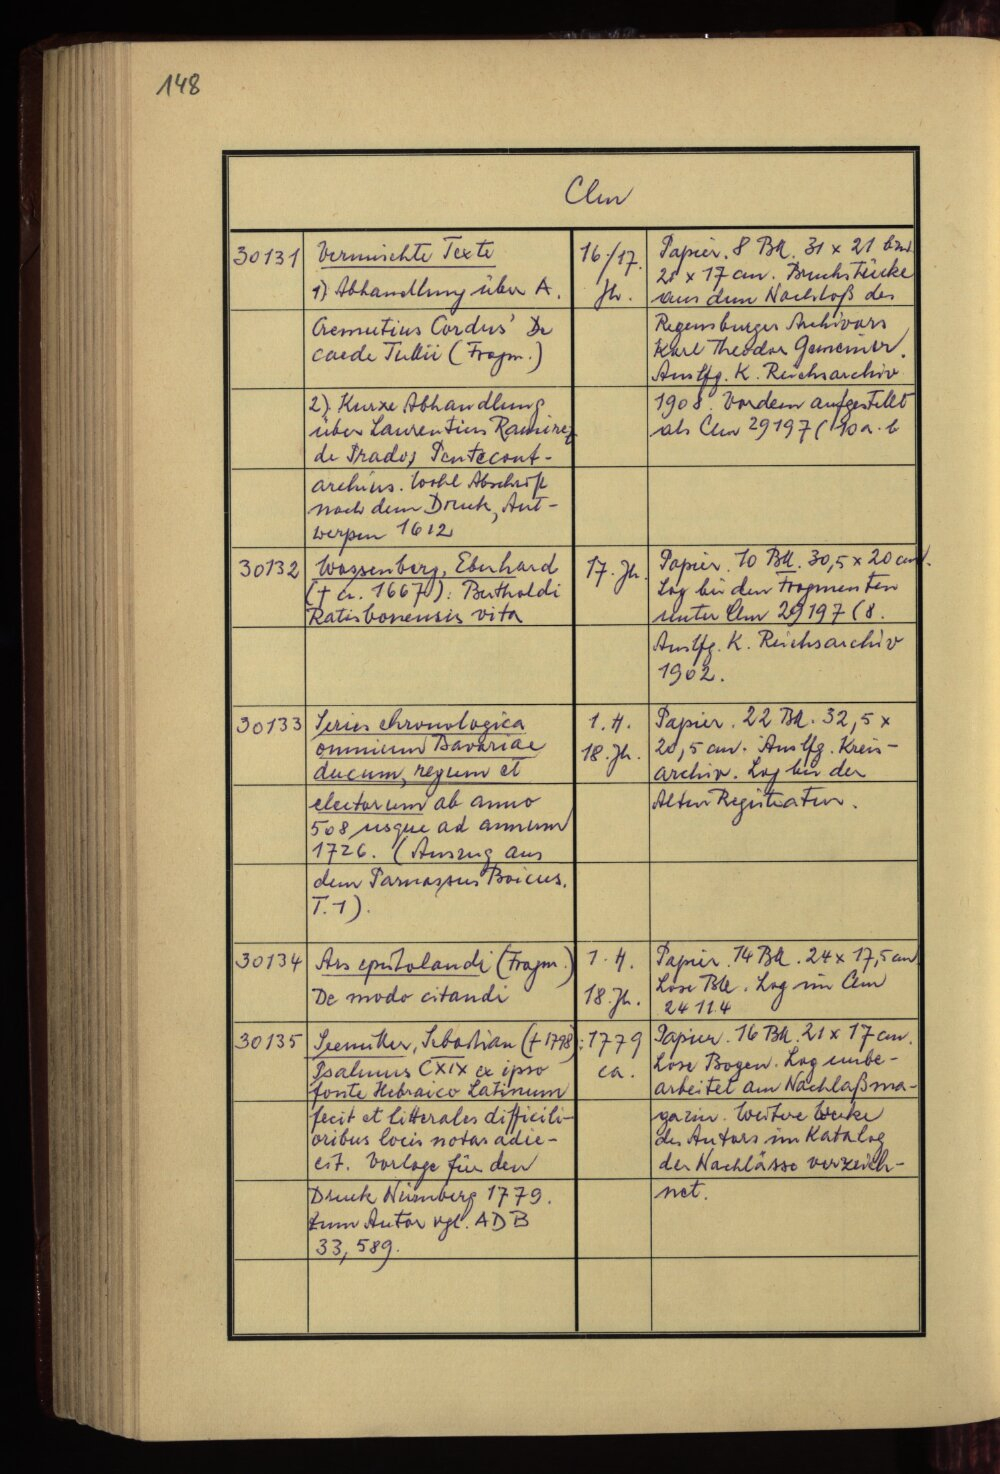 148
Clm
30131
Vermischte Texte
1) Abhandlung über A.
Cremutius Cordus' De
caede Tullii (Fragm.)
2) Kurze Abhandlung
über Laurentius Ramirez
de Prado, Pentecont-
archus. Wohl Abschrift
nach dem Druck, Ant-
werpen 1612
16./17.
Jh.
Papier. 8 Bll. 31 x 21 bzw.
28 x 17 cm. Bruchstücke
aus dem Nachlaß des
Regensburger Archivars
Karl Theodor Gemeiner.
Auslfg. K. Reichsarchiv
1908. Vordem aufgestellt
als Clm 29197 (10 a. b
30132
Wassenberg, Eberhard
(† ca. 1667): Bertholdi
Ratisbonensis vita
17. Jh.
Papier. 10 Bll. 30,5 x 20 cm.
Lag bei den Fragmenten
unter Clm 29197 (8.
Auslfg. K. Reichsarchiv
1902.
30133
Series chronologica
omnium Bavariae
ducum, regum et
electorum ab anno
508 usque ad annum
1726. (Auszug aus
dem Parnassus Boicus.
T. 1).
1. H.
18. Jh.
Papier. 22 Bll. 32,5 x
20,5 cm. Auslfg. Kreis-
archiv. Lag bei der
Alten Registratur.
30134
Ars epistolandi (Fragm.)
De modo citandi
1. H.
18. Jh.
Papier. 14 Bll. 24 x 17,5 cm
Lose Bll. Lag im Clm
24114
30135
Seemiller, Sebastian († 1798):
Psalmus CXIX ex ipso
fonte Hebraico Latinum
fecit et litterales difficili-
oribus locis notas adie-
cit. Vorlage für den
Druck Nürnberg 1779.
Zum Autor vgl. ADB
33, 589.
1779
ca.
Papier. 16 Bll. 21 x 17 cm.
Lose Bogen. Lag unbe-
arbeitet am Nachlaßma-
gazin. Weitere Werke
des Autors im Katalog
der Nachlässe verzeich-
net.